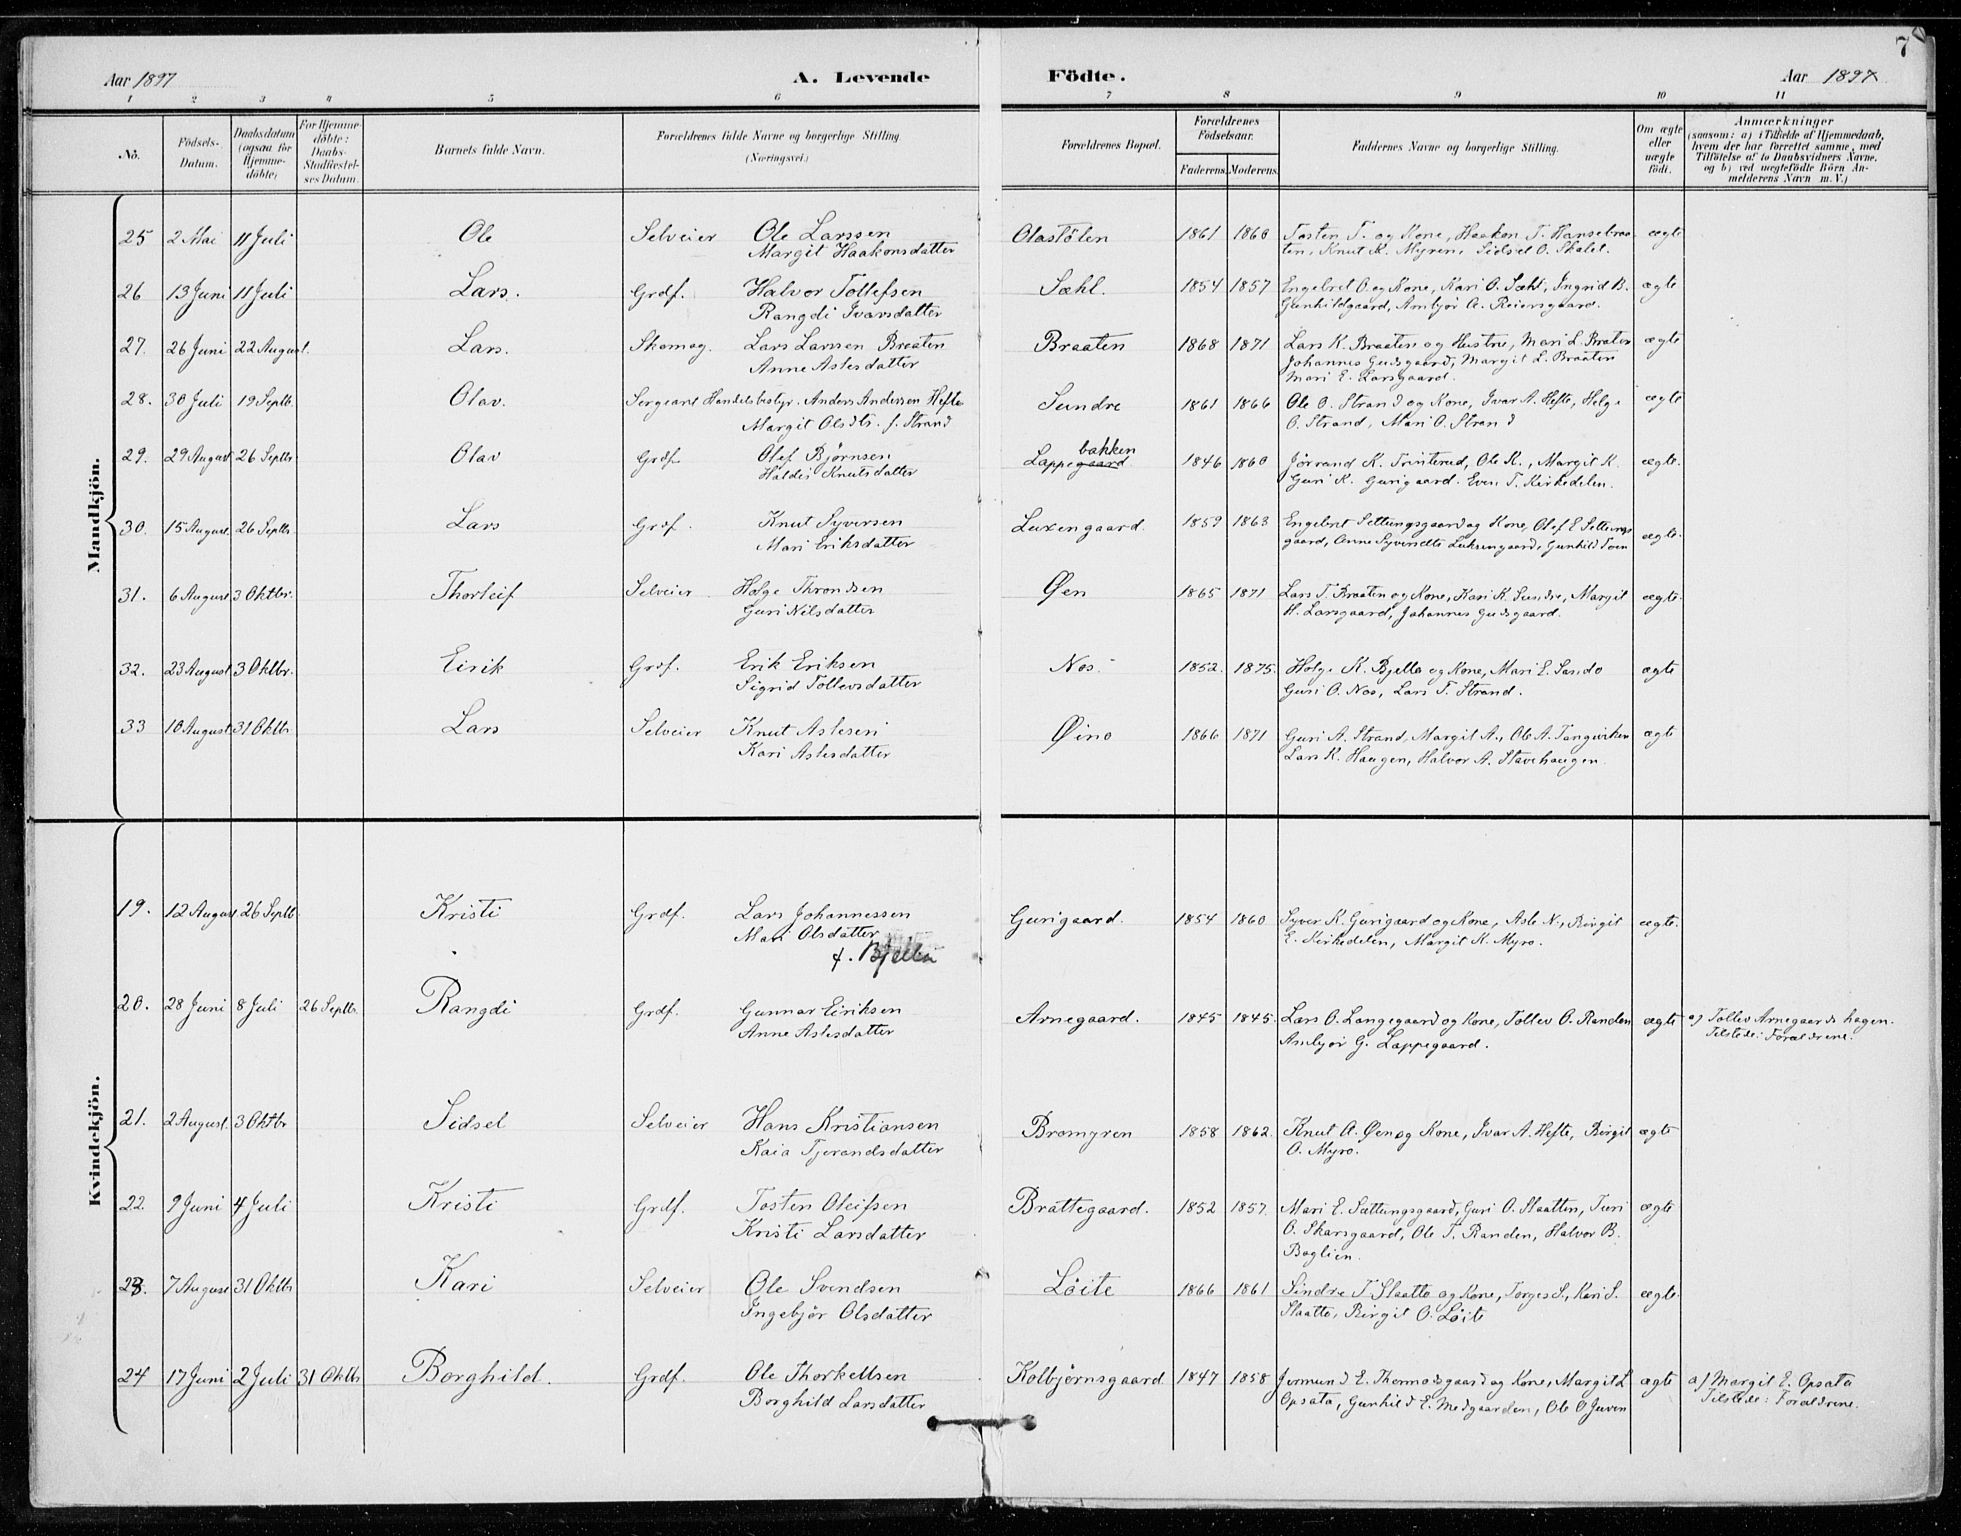 7
Aar 1897 A. Levende Födte. Aar 1897
1 2 3 4 5 6 7 8 9 10 11
No. Födsels-Datum. Daabsdatum (ogsaa for Hjemme-döbte) For Hjemme-döbte: Daabs-Stadfæstel-ses Datum. Barnets fulde Navn. Forældrenes fulde Navne og borgerlige Stilling (Næringsvei.) Forældrenes Bopæl. Forældrenes Födselsaar. Faderens. Moderens. Faddernes Navne og borgerlige Stilling. Om ægte eller uægte födt. Anmærkninger (saasom: a) i Tilfælde af Hjemmedaab, hvem der har forrettet samme, med Tilföielse af to Daabsvidners Navne, og b) ved uægtefödte Börn An-melderens Navn m. V.)
Mandkjön.
25 2 Mai 11 Juli Ole Selveier Ole Larssen Olastölen 1861 1860 Tosten T. og Kone, Haakon T. Hansebraa- ægte
Margit Haakonsdatter ten, Knut K. Myren, Sidsel O. Skalet.
26 13 Juni 11 Juli Lars. Grdf. Halvor Tollefsen Sæhl. 1854 1857 Engebret O. og Kone, Kari O. Sæhl, Ingrid B. ægte
Rangdi Ivarsdatter Gunhildgaard, Ambjør A. Reiersgaard.
27. 26 Juni 22 August. Lars. Skomag. Lars Larssen Braaten Braaten 1868 1871 Lars K. Braaten og Hustru, Mari L. Braaten ægte
Anne Aslesdatter Johannes Gudsgaard, Margit L. Braaten
Mari E. Larsgaard.
28. 30 Juli 19 Septb. Olav. Sergeant Handelsbestyr. Anders Anderssen Hefte Sundre 1861 1866 Ole O. Strand og Kone, Ivar A. Hefte, Helge ægte
Margit Olsdtr. f. Strand O. Strand, Mari O. Strand
29. 29 August 26 Septbr Olav Grdf Olef Bjørnsen Lappegaard bakken 1846 1860 Jørrand K. Trinterud, Ole K., Margit K. ægte.
Haldis Knutsdatter Guri K. Gurigaard. Even T. Kirkedelen.
30. 15 August. 26 Septbr. Lars Grdf. Knut Syversen Luxengaard. 1859 1863 Engebret Settungsgaard og Kone, Olef E Settungs ægte.
Mari Eriksdatter gaard, Anne Syversdtr Luksengaard, Gunhild Toen
31. 6 August 3 Oktbr. Thorleif Selveier Helge Throndsen Øen 1865 1871 Lars T. Braaten og Kone, Kari K. Sundre, Margit ægte.
Guri Nilsdatter H. Larsgaard, Johannes Gudsgaard.
32. 23 August 3 Oktbr. Eirik Grdf. Erik Eriksen Nos. 1852. 1875. Helge K. Bjella og Kone, Mari E. Sando ægte
Sigrid Tollevsdatter Guri O. Nos, Lars T. Strand.
33 10 August 31 Oktbr. Lars Selveier Knut Aslesen Øino 1866 1871 Guri A. Strand, Margit A., Ole A. Tangeviken ægte
Kari Aslesdatter Lars K. Haugen, Halvor A. Stavehaugen.
Kvindekjön.
19. 12 August 26 Septb. Kristi Grdf. Lars Johannessen Gurigaard. 1854 1860 Syver K. Gurigaard og Kone, Asle N., Birgit ægte.
Mari Olsdatter E. Kirkedelen, Margit K. Myro.
f. Bjella
20. 28 Juni 8 Juli 26 Septbr. Rangdi Grdf. Gunnar Eiriksen Arnegaard. 1845 1845. Lars O. Langegaard og Kone, Tollev O. Randen ægte a) Tollev Arnegaardshagen.
Anne Aslesdatter Ambjør G. Lappegaard. Tilstede: Forældrene.
21. 2 August. 3 Oktbr Sidsel Selveier Hans Kristiansen Bromyren 1858 1862. Knut A. Øen og Kone, Ivar A. Hefte, Birgit ægte
Kaia Tjerandsdatter O. Myro.
22. 9 Juni 4 Juli Kristi Grdf. Tosten Oleifsen Brattegaard. 1852 1857. Mari E. Sættungsgaard, Guri O. Slaatten, Turi ægte
Kristi Larsdatter O. Skarsgaard, Ole T. Randen, Halvor B.
Baglien.
23. 7 August 31 Oktbr Kari Selveier Ole Svendsen Löite 1866 1861 Sindre T. Slaatto og Kone, Torges S., Kari S. ægte
Ingebjør Olsdatter Slaatto, Birgit O. Löite
24 17 Juni 2 Juli 31 Oktbr Borghild. Grdf. Ole Thorkellsen Kolbjørnsgaard 1847 1858 Jermund E. Thormodsgaard og Kone, Margit L ægte a) Margit E. Opsata
Borghild Larsdatter Opsata, Gunhild E. Medgaarden, Ole O Juven Tilstede: Forældrene.